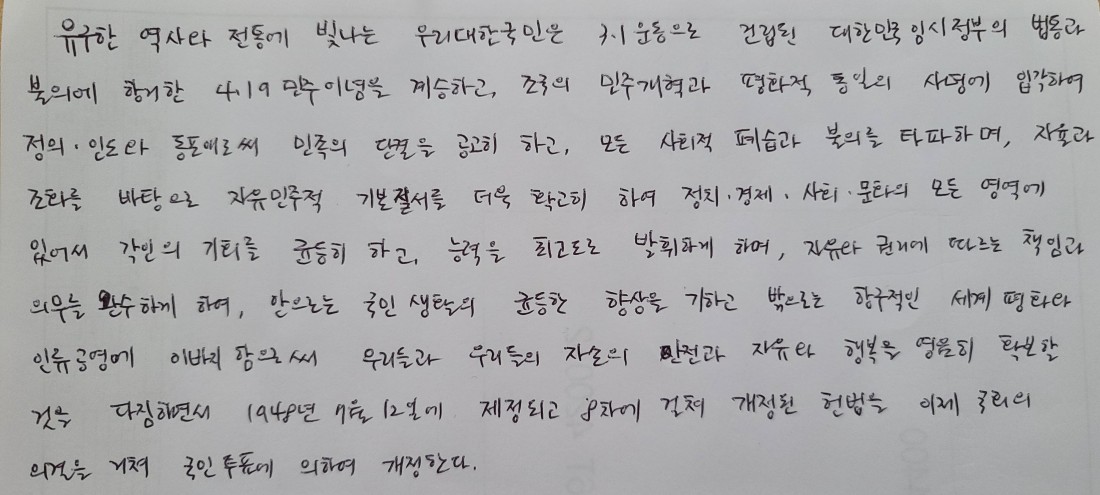 유구한 역사와 전통에 빛나는 우리대한국민은 3.1운동으로 건립된 대한민국임시정부의 법통과
불의에 항거한 4.19 민주이념을 계승하고, 조국의 민주개혁과 평화적 통일의 사명에 입각하여
정의·인도와 동포애로써 민족의 단결을 공고히 하고, 모든 사회적 폐습과 불의를 타파하며, 자율과
조화를 바탕으로 자유민주적 기본질서를 더욱 확고히 하여 정치·경제·사회·문화의 모든 영역에
있어서 각인의 기회를 균등히 하고, 능력을 최고도로 발휘하게 하며, 자유와 권리에 따르는 책임과
의무를 완수하게 하여, 안으로는 국민생활의 균등한 향상을 기하고 밖으로는 항구적인 세계평화와
인류공영에 이바지함으로써 우리들과 우리들의 자손의 안전과 자유와 행복을 영원히 확보할
것을 다짐하면서 1948년 7월 12일에 제정되고 8차에 걸쳐 개정된 헌법을 이제 국회의
의결을 거쳐 국민투표에 의하여 개정한다.